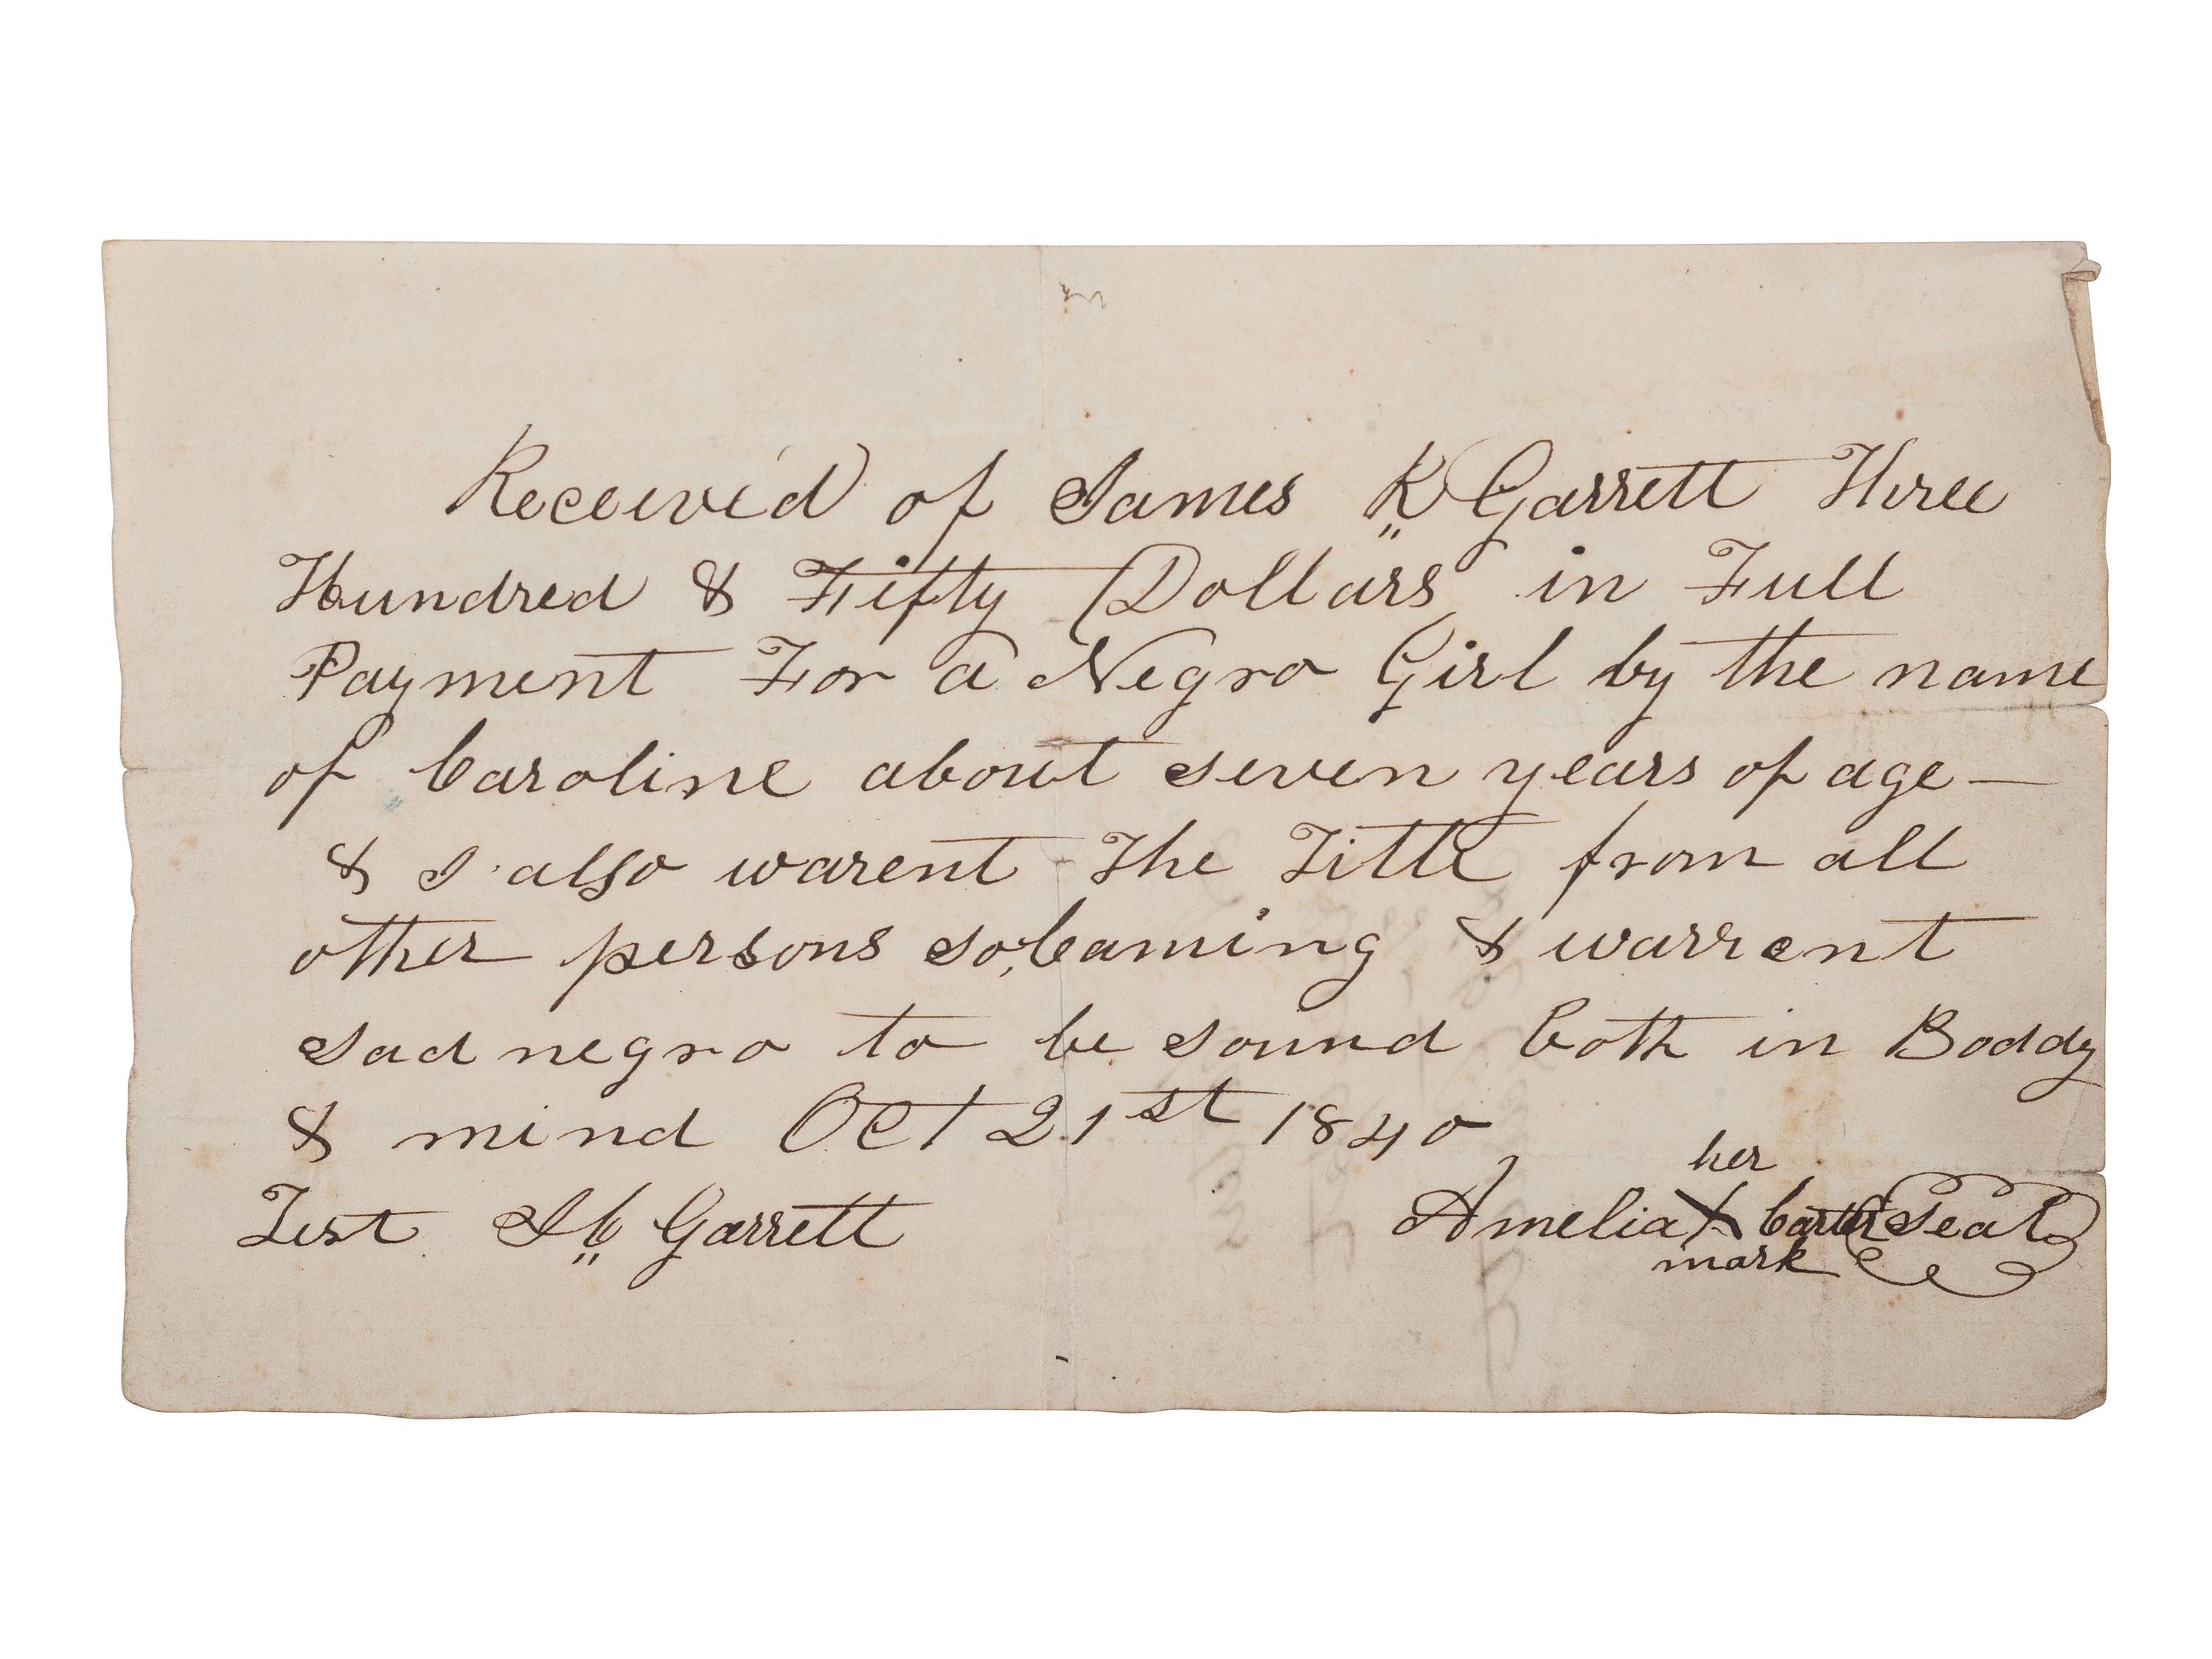 Received of James K Garrett Three
Hundred & Fifty Dollars in Full
Payment For a Negro Girl by the name
of Caroline about seven years of age —
& I also warent The Title from all
other persons so,,Caming & warrent
sad negro to be sound both in Boddy
& mind Oct 21st 1840
her
Test J,,C Garrett Amelia X Carter Seal
mark